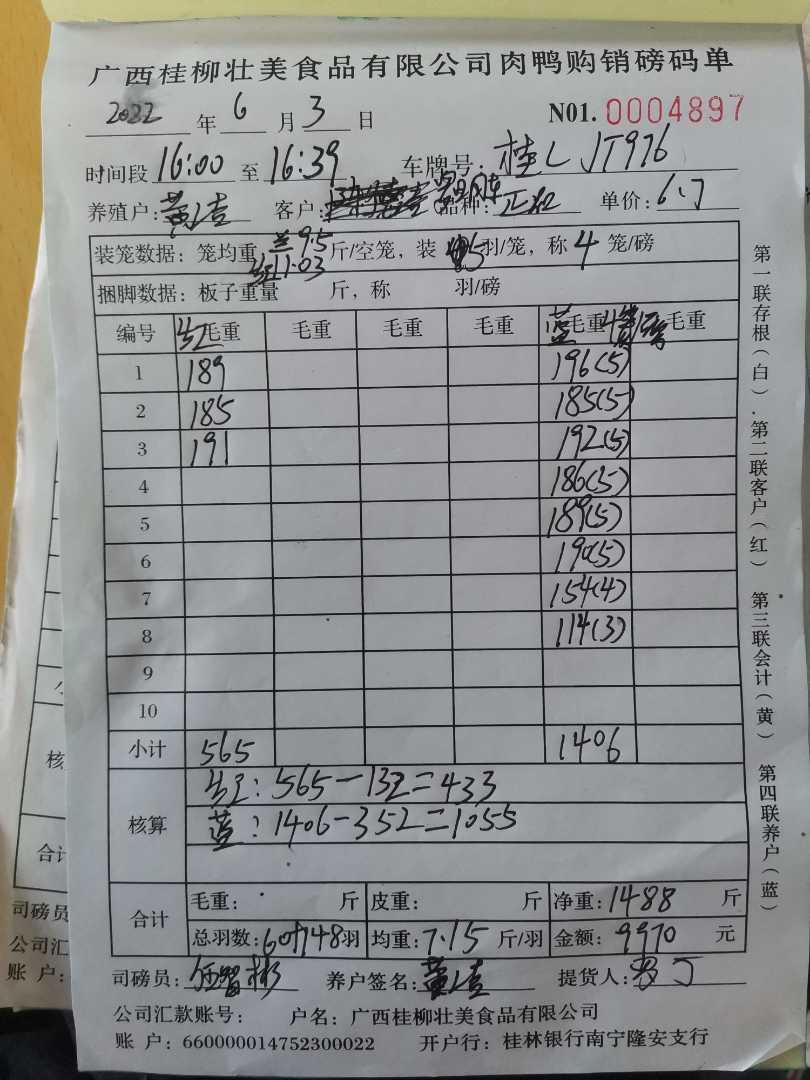 广西桂柳壮美食品有限公司肉鸭购销磅码单
2022 年 6 月 3 日 N01. 0004897
时间段 16:00 至 16:39 车牌号: 桂L JT976
养殖户: 黄 客户: 品种: 单价: 6.7
装笼数据: 笼均重 兰9.5 斤/空笼, 装 5 羽/笼, 称 4 笼/磅
红11.03
捆脚数据: 板子重量 斤, 称 羽/磅
编号 红毛重 毛重 毛重 毛重 蓝毛重 毛重
1 189 196(5)
2 185 185(5)
3 191 192(5)
4 186(5)
5 189(5)
6 190(5)
7 154(4)
8 114(3)
9
10
小计 565 1406
核算 红: 565-132=433
蓝: 1406-352=1055
合计 毛重: 斤 皮重: 斤 净重: 1488 斤
总羽数: 148羽 均重: 7.15 斤/羽 金额: 9970 元
司磅员: 养户签名: 黄 提货人:
公司汇款账号: 户名: 广西桂柳壮美食品有限公司
账 户: 660000014752300022 开户行: 桂林银行南宁隆安支行
第一联存根(白). 第二联客户(红) 第三联会计(黄) 第四联养户(蓝)
核
合计
司磅员
公司汇
账 户: